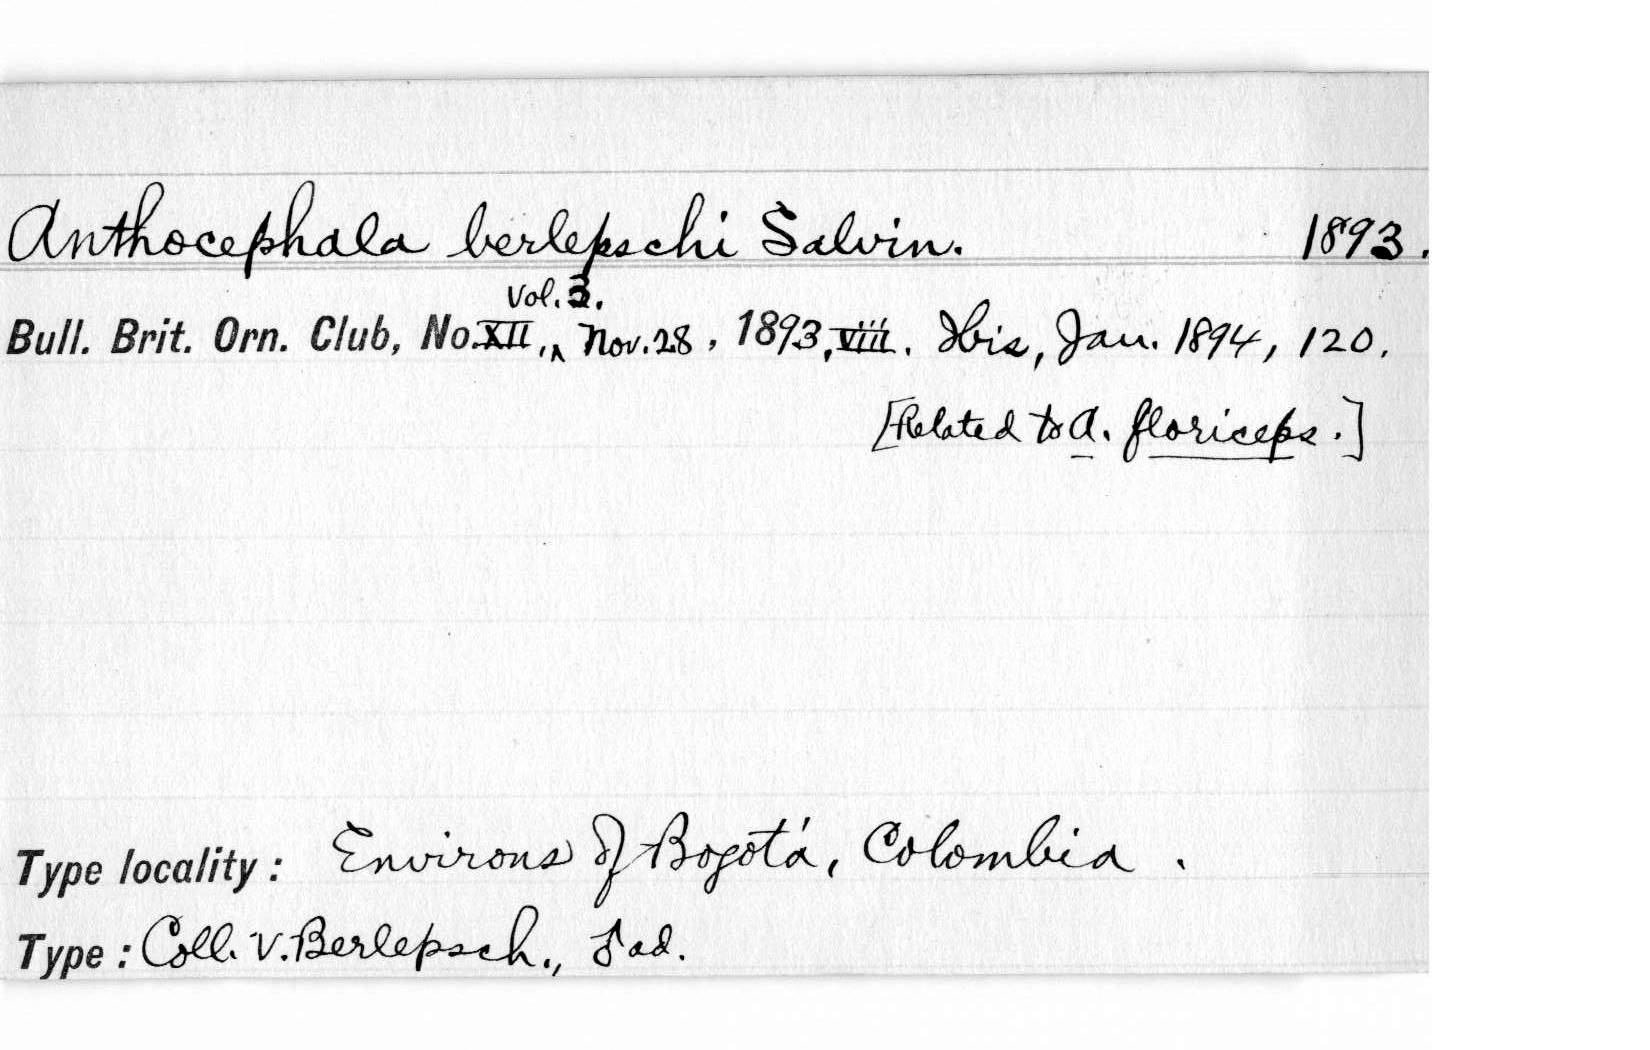 Anthocephala berlepschi Salvin. 1893.
Vol. 3.
Bull. Brit. Orn. Club, No. XII, ‸ Nov. 28, 1893, viii. Ibis, Jan. 1894, 120.
[Related to A. floriceps.]
Type locality: Environs of Bogotá, Colombia.
Type: Coll. V. Berlepsch., ♂ ad.